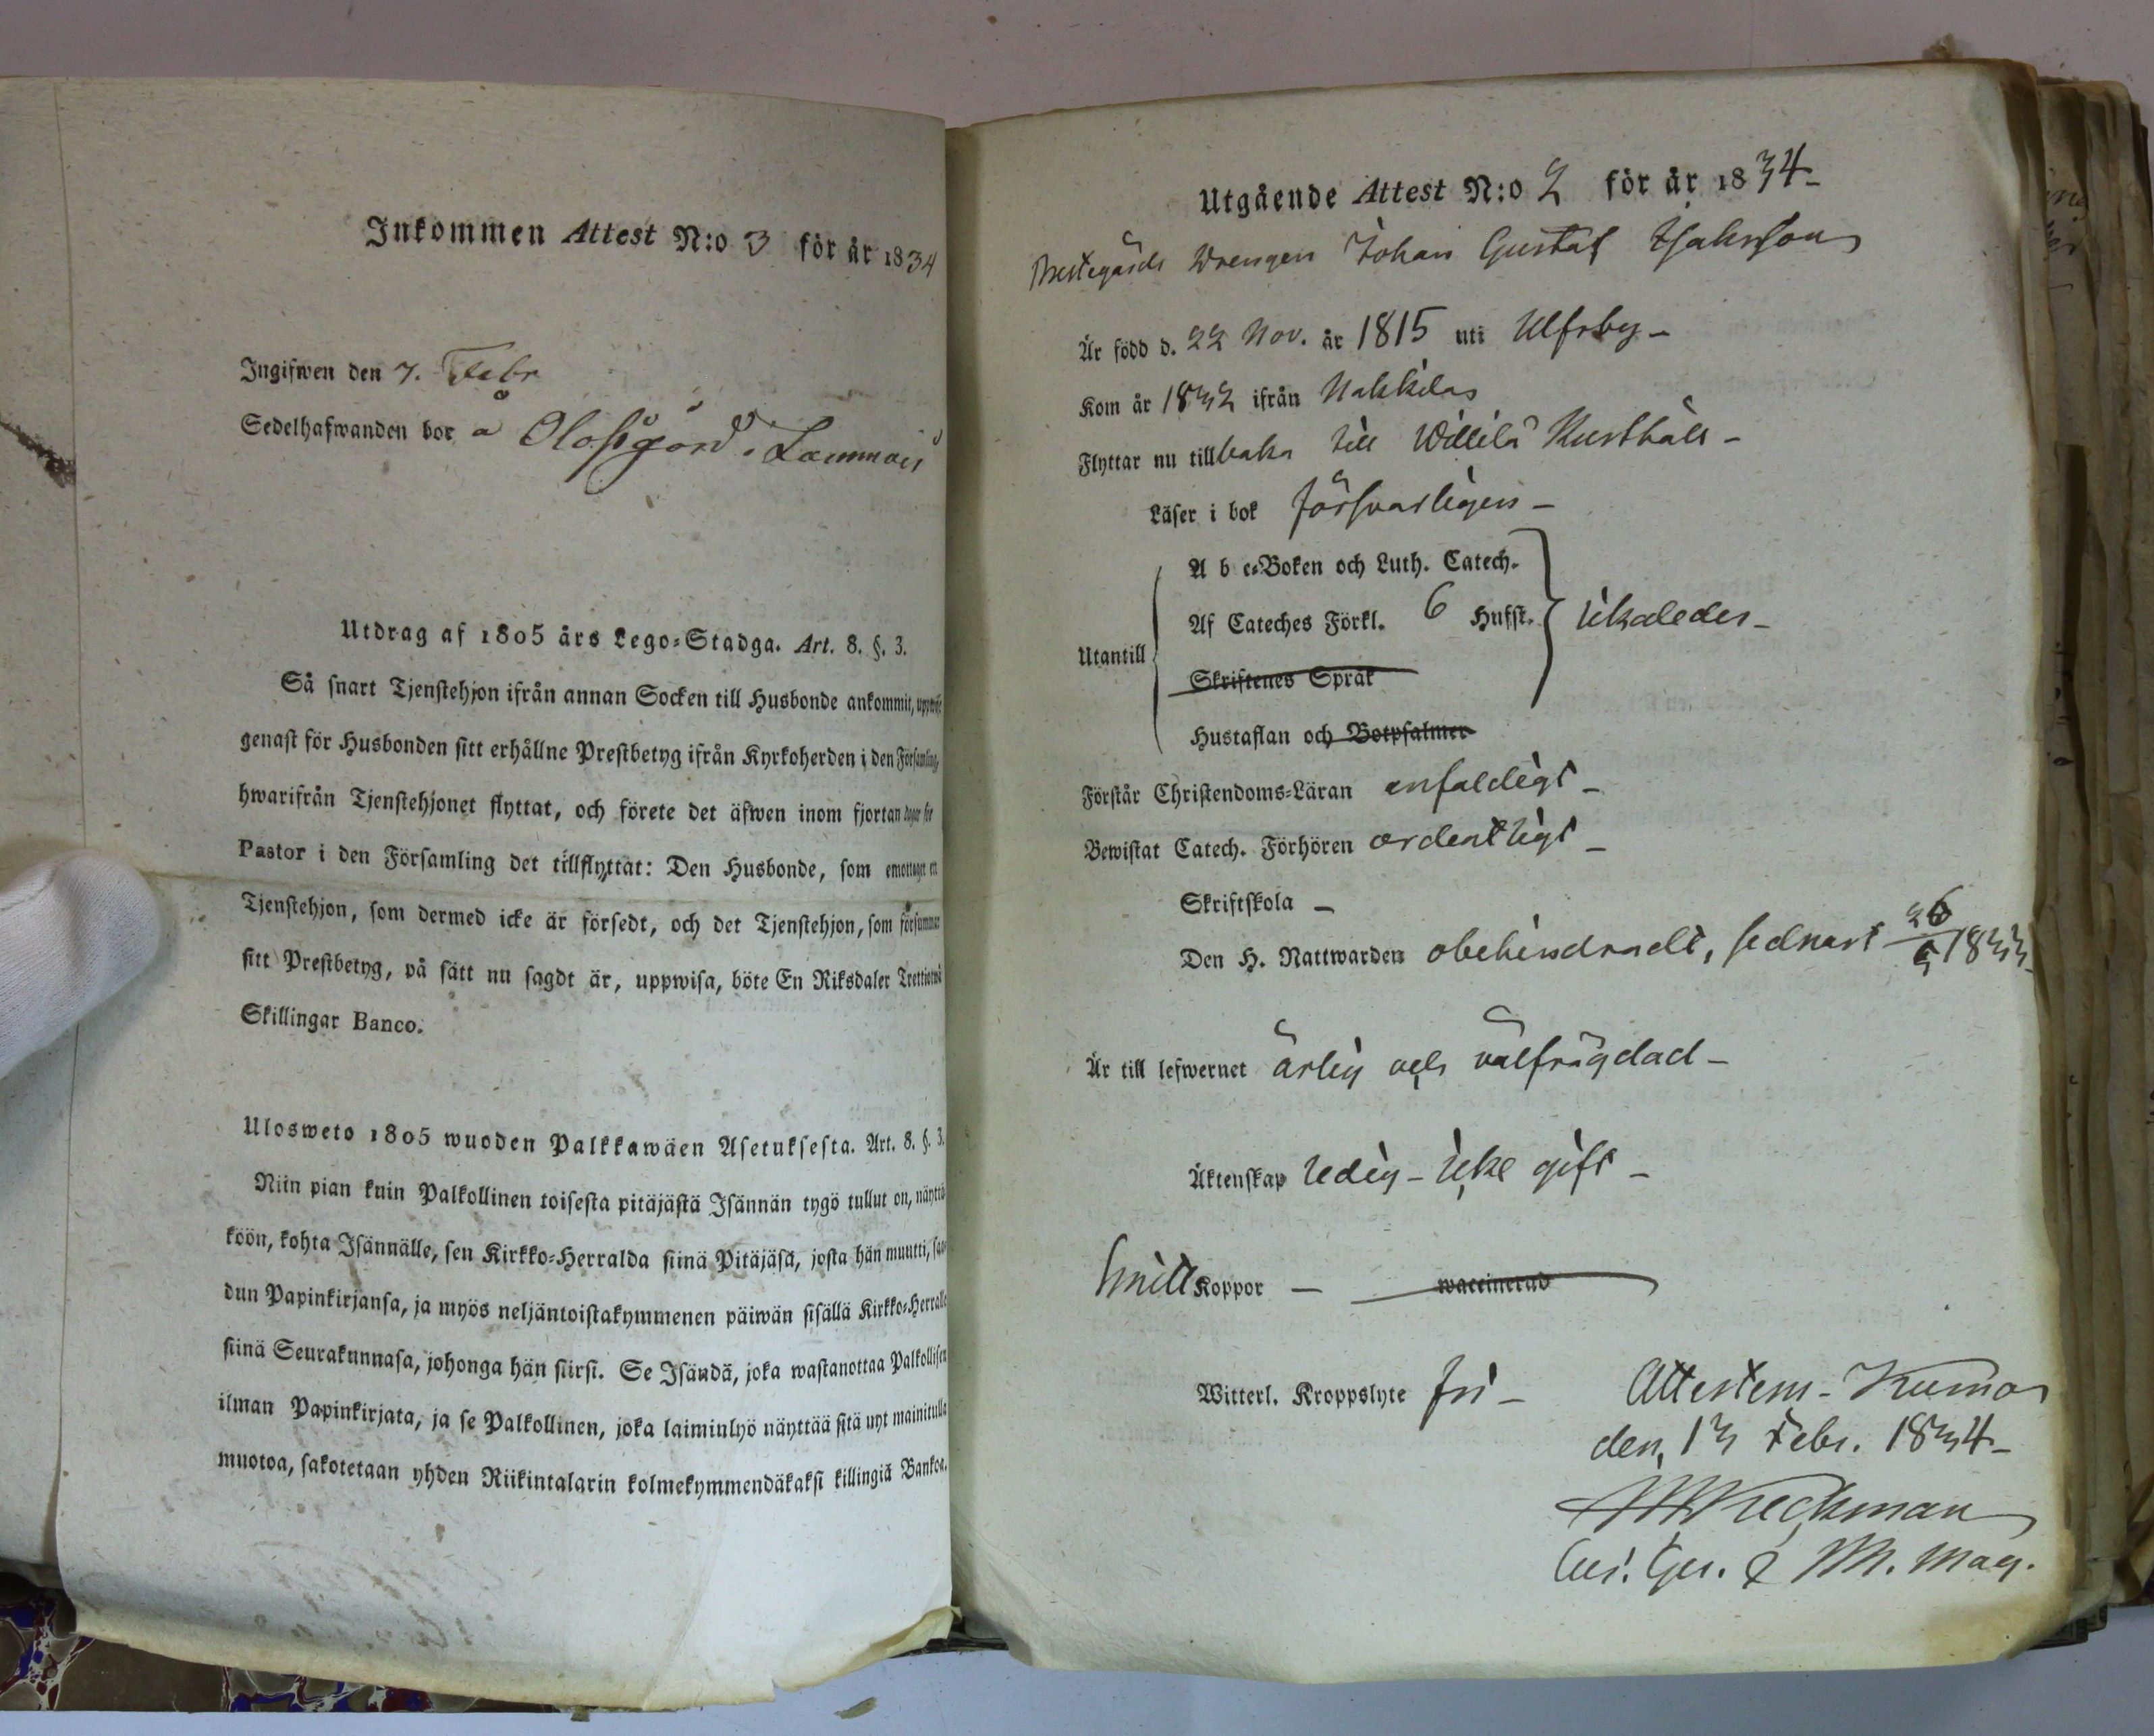 Inkommen Attest N:o 3 för år 1834
Ingifwen den 7. Febr
Sedelhafwanden bor å Olofsgård i
Utdrag af 1805 års Lego-Stadga. Art. 8. §. 3.
Så snart Tjenstehjon ifrån annan Socken till Husbonde ankommit,
genast för Husbonden sitt erhållne Prestbetyg ifrån Kyrkoherden i den
hwarifrån Tjenstehjonet flyttat, och förete det äfwen inom fjortan dagar för
Pastor i den Församling det tillflyttat: Den Husbonde, som emottager ett
Tjenstehjon, som dermed icke är försedt, och det Tjenstehjon, som försummar
sitt Prestbetyg, på sätt nu sagdt är, uppwisa, böte En Riksdaler Trettiotwå
Skillingar Banco.
Ulosweto 1805 wuoden Palkkawäen Asetuksesta. Art. 8. §. 3.
Niin pian kuin Palkollinen toisesta pitäjästä Isännän tygö tullut on, näyttä-
köön, kohta Isännälle, sen Kirkko-Herralda siinä Pitäjäsä, josta hän muutti, saa-
dun Papinkirjansa, ja myös neljäntoistakymmenen päiwän sisällä Kirkko-Herralle
siinä Seurakunnasa, johonga hän siirsi. Se Isändä, joka wastanottaa Palkollisen
ilman Papinkirjata, ja se Palkollinen, joka laiminlyö näyttää sitä nyt mainitulla
muotoa, sakotetaan yhden Riikintalarin kolmekymmendäkaksi killingiä Bankoa.
Utgående Attest N:o 2 för år 1834-
Prestegårds Drengen Johan Gustaf Isaksson
Är född d. 22 Nov. år 1815 uti Ulfsby-
Kom år 1832 ifrån Nakkila
Flyttar nu tillbaka till Willilä Rusthåll-
Läser i bok försvarligen-
A b c-Boken och Luth. Catech.
Af Cateches Förkl. 6 Hufst. likaledes-
Utantill
Skriftenes Språk
Hustaflan och Botpsalmer
Förstår Christendoms-Läran enfaldigt-
Bewistat Catech. Förhören ordentligt-
Skriftskola -
Den H. Nattwarden obehindradt, sednast 26/5 1833-
Är till lefwernet ärlig och välfrägdad-
Äktenskap ledig - icke gift-
Smitt Koppor - waccinerad
Witterl. Kroppslyte fri- Attestem- Kumo
den, 13 Febr. 1834-